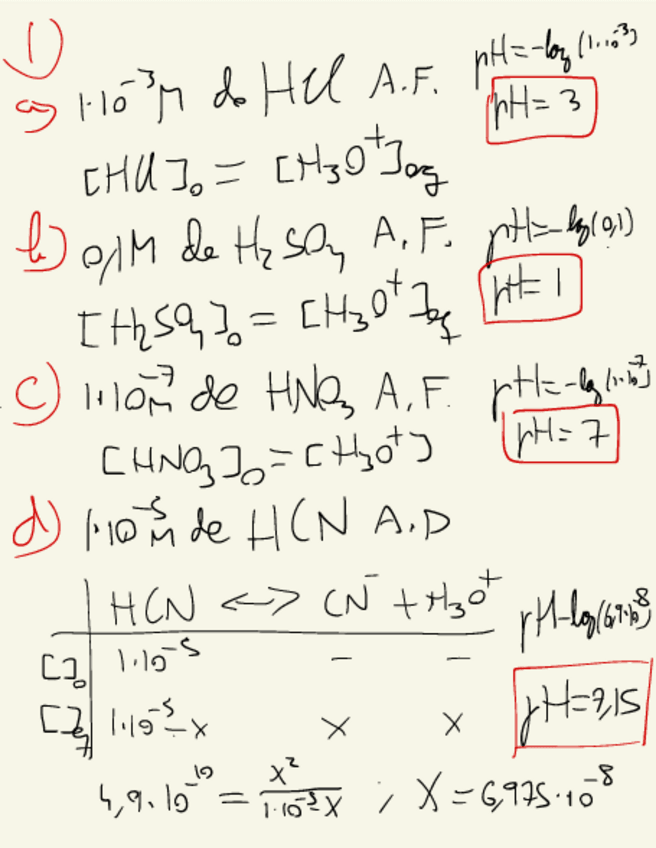 1)
a) 1·10⁻³M de HCl A.F. pH=-log(1·10⁻³)
pH= 3
[HCl]₀ = [H₃O⁺]eq
b) 0,1M de H₂SO₄ A.F. pH=-log(0,1)
pH= 1
[H₂SO₄]₀ = [H₃O⁺]eq
c) 1·10⁻⁷M de HNO₃ A.F. pH=-log(1·10⁻⁷)
pH= 7
[HNO₃]₀=[H₃O⁺]
d) 1·10⁻⁵M de HCN A.D
HCN <-> CN⁻ + H₃O⁺ pH-log(6,9·10⁻⁸)
[]₀ 1·10⁻⁵ - -
[]eq 1·10⁻⁵-x x x
pH=7,15
4,9·10⁻¹⁰ = x²/1·10⁻⁵-x ; X=6,975·10⁻⁸